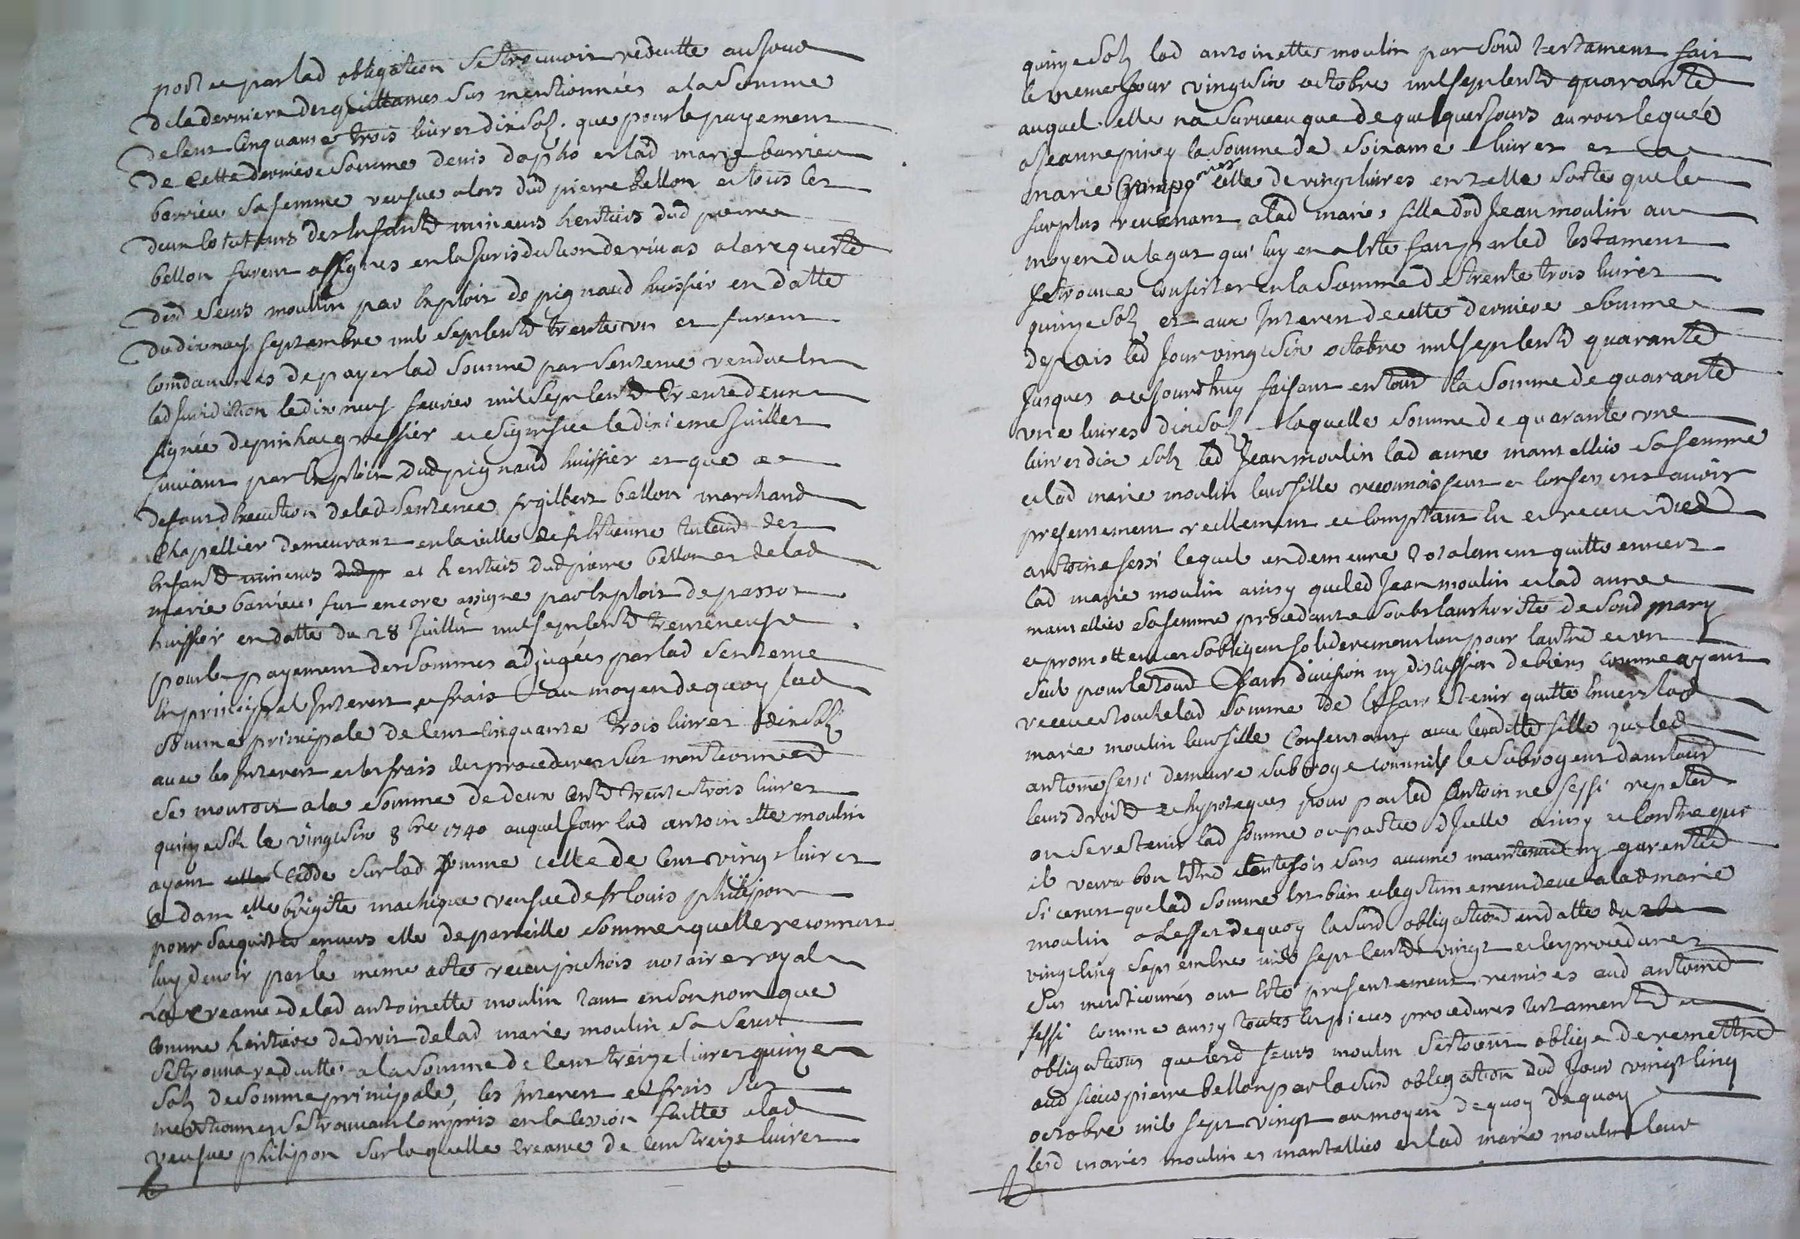 portee par lad obligation se trouvoit reduitte au jour
de la derniere des quittances sus mentionnées a la somme
de cent cinquante trois livres dix sols. que pour le payement
de cette derniere somme denis dapho et lad marie barrieu
barrieu sa femme veufue alors dud pierre bellon et tous les
deux cotuteurs des enfants mineurs heritiers dud pierre
bellon furent assignes en la jurisdiction de rivas a la requette
desd seurs moulin par exploit de pignaud huissier en datte
du dix neuf septembre mil sept cents trente un et furent
condamnes de payer lad somme par sentence rendue en
lad juridiction le dix neuf fevrier mil sept cents trente deux
signée depinhac greffier et signifiee le dixieme juillet
suivant par exploit dud pignaud huissier et que a
defaut dexecution de lad sentence sr gilbert bellon marchand
chapellier demeurant en la ville de st etienne tuteur des
enfants mineurs dud p et heritiers dud pierre bellon et de lad
marie barrieu fut encore assigne par exploit de passot
huissier en datte du 28 juillet mil sept cents trente neuf
pour le payement des sommes adjugées par lad sentence
en principal interest et frais au moyen de quoy lad
somme principale de cent cinquante trois livres dix sols
avec les interest et les frais des procedures sus mentionnées
se montoit a la somme de deux cents trente trois livres
quinze sols le vingt six 8bre 1740 auquel jour lad antoinette moulin
ayant elle cedde sur lad somme celle de cent vingt livres
a dam elle brigitte machique veufue de sr louis philipon
pour sacquitter envers elle de pareille somme quelle reconnut
luy devoir par le meme acte receu pichois notaire royal
la creance de lad antoinette moulin tant en son nom que
comme heritiere de droit de lad marie moulin sa seur
se trouva reduitte a la somme de cent treize livres quinze
sols de somme principale, les interest et frais sus
mentionnes se trouvant compris en la cession faitte a lad
veufue philipon sur laquelle creance de cent treize livres
quinze sols lad antoinette moulin par sond testament fait
le meme jour vingt six octobre mil sept cents quarante
auquel elle na survecu que de quelques jours auroit legué
a jeanne piney la somme de soixante livres et a
marie celle de vingt livres en telle sorte que le
surplus revenant a lad marie fille dud jean moulin au
moyen du legat qui luy en a été fait par led testament
se trouve consister en la somme de trente trois livres
quinze sols et aux interest de cette derniere somme
depuis led jour vingt six octobre mil sept cents quarante
jusques a ce jourdhuy faisant en tout la somme de quarante
une livres dix sols laquelle somme de quarante une
livres dix sols led jean moulin lad anne mantellier sa femme
et lad marie moulin leur fille reconnoissent et confessent avoir
presentement reellement et comptant eu et receu dud
antoine sessi lequel en demeure totalement quitte envers
lad marie moulin ainsy que led jean moulin et lad anne
mantellier sa femme procedante soubs lauthorité de sond mary
et promettent et sobligent solidairement lun pour lautre et un
seul pour le tout sans division ny discussion de biens comme ayant
receu et touché lad somme de les faire tenir quitte envers lad
marie moulin leur fille consentant avec leuditte fille que led
antoine sessi demeure subrogé comme ils le subrogent dans tous
leurs droits et hypoteques pour par led antoine sessi repeter
ou se retenir lad somme ou partie dicelle ainsy et contre qui
il verra bon etre toutefois sans aucune maintenue ny garentie
si ce nest que lad somme est bien et legitimement deue a lad marie
moulin a leffet de quoy la susd obligation en datte du
vingt cinq septembre mil sept cents vingt et les procedures
sus mentionnés ont été presentement remises aud antoine
sessi comme aussy toutes les pieces procedures testaments et
obligations que lesd seurs moulin sestoient obligé de remettre
aud sieur pierre bellon par la susd obligation dud jour vingt cinq
octobre mil sept vingt au moyen de quoy de quoy
lesd mariés moulin et mantellier et lad marie moulin leur